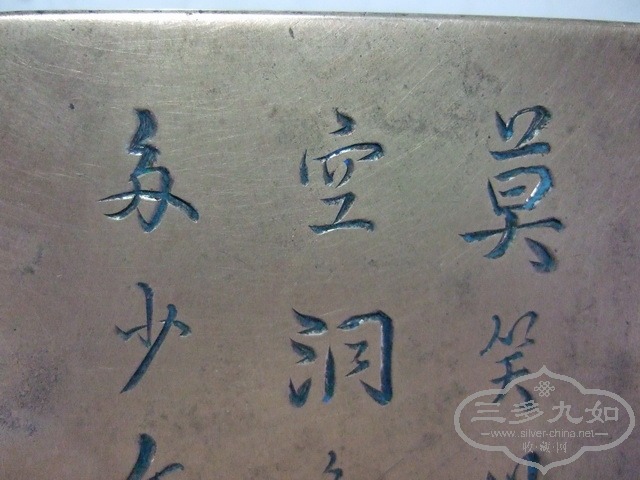 莫笑
空洞
多少
三多九如
www.silver-china.net
收藏网